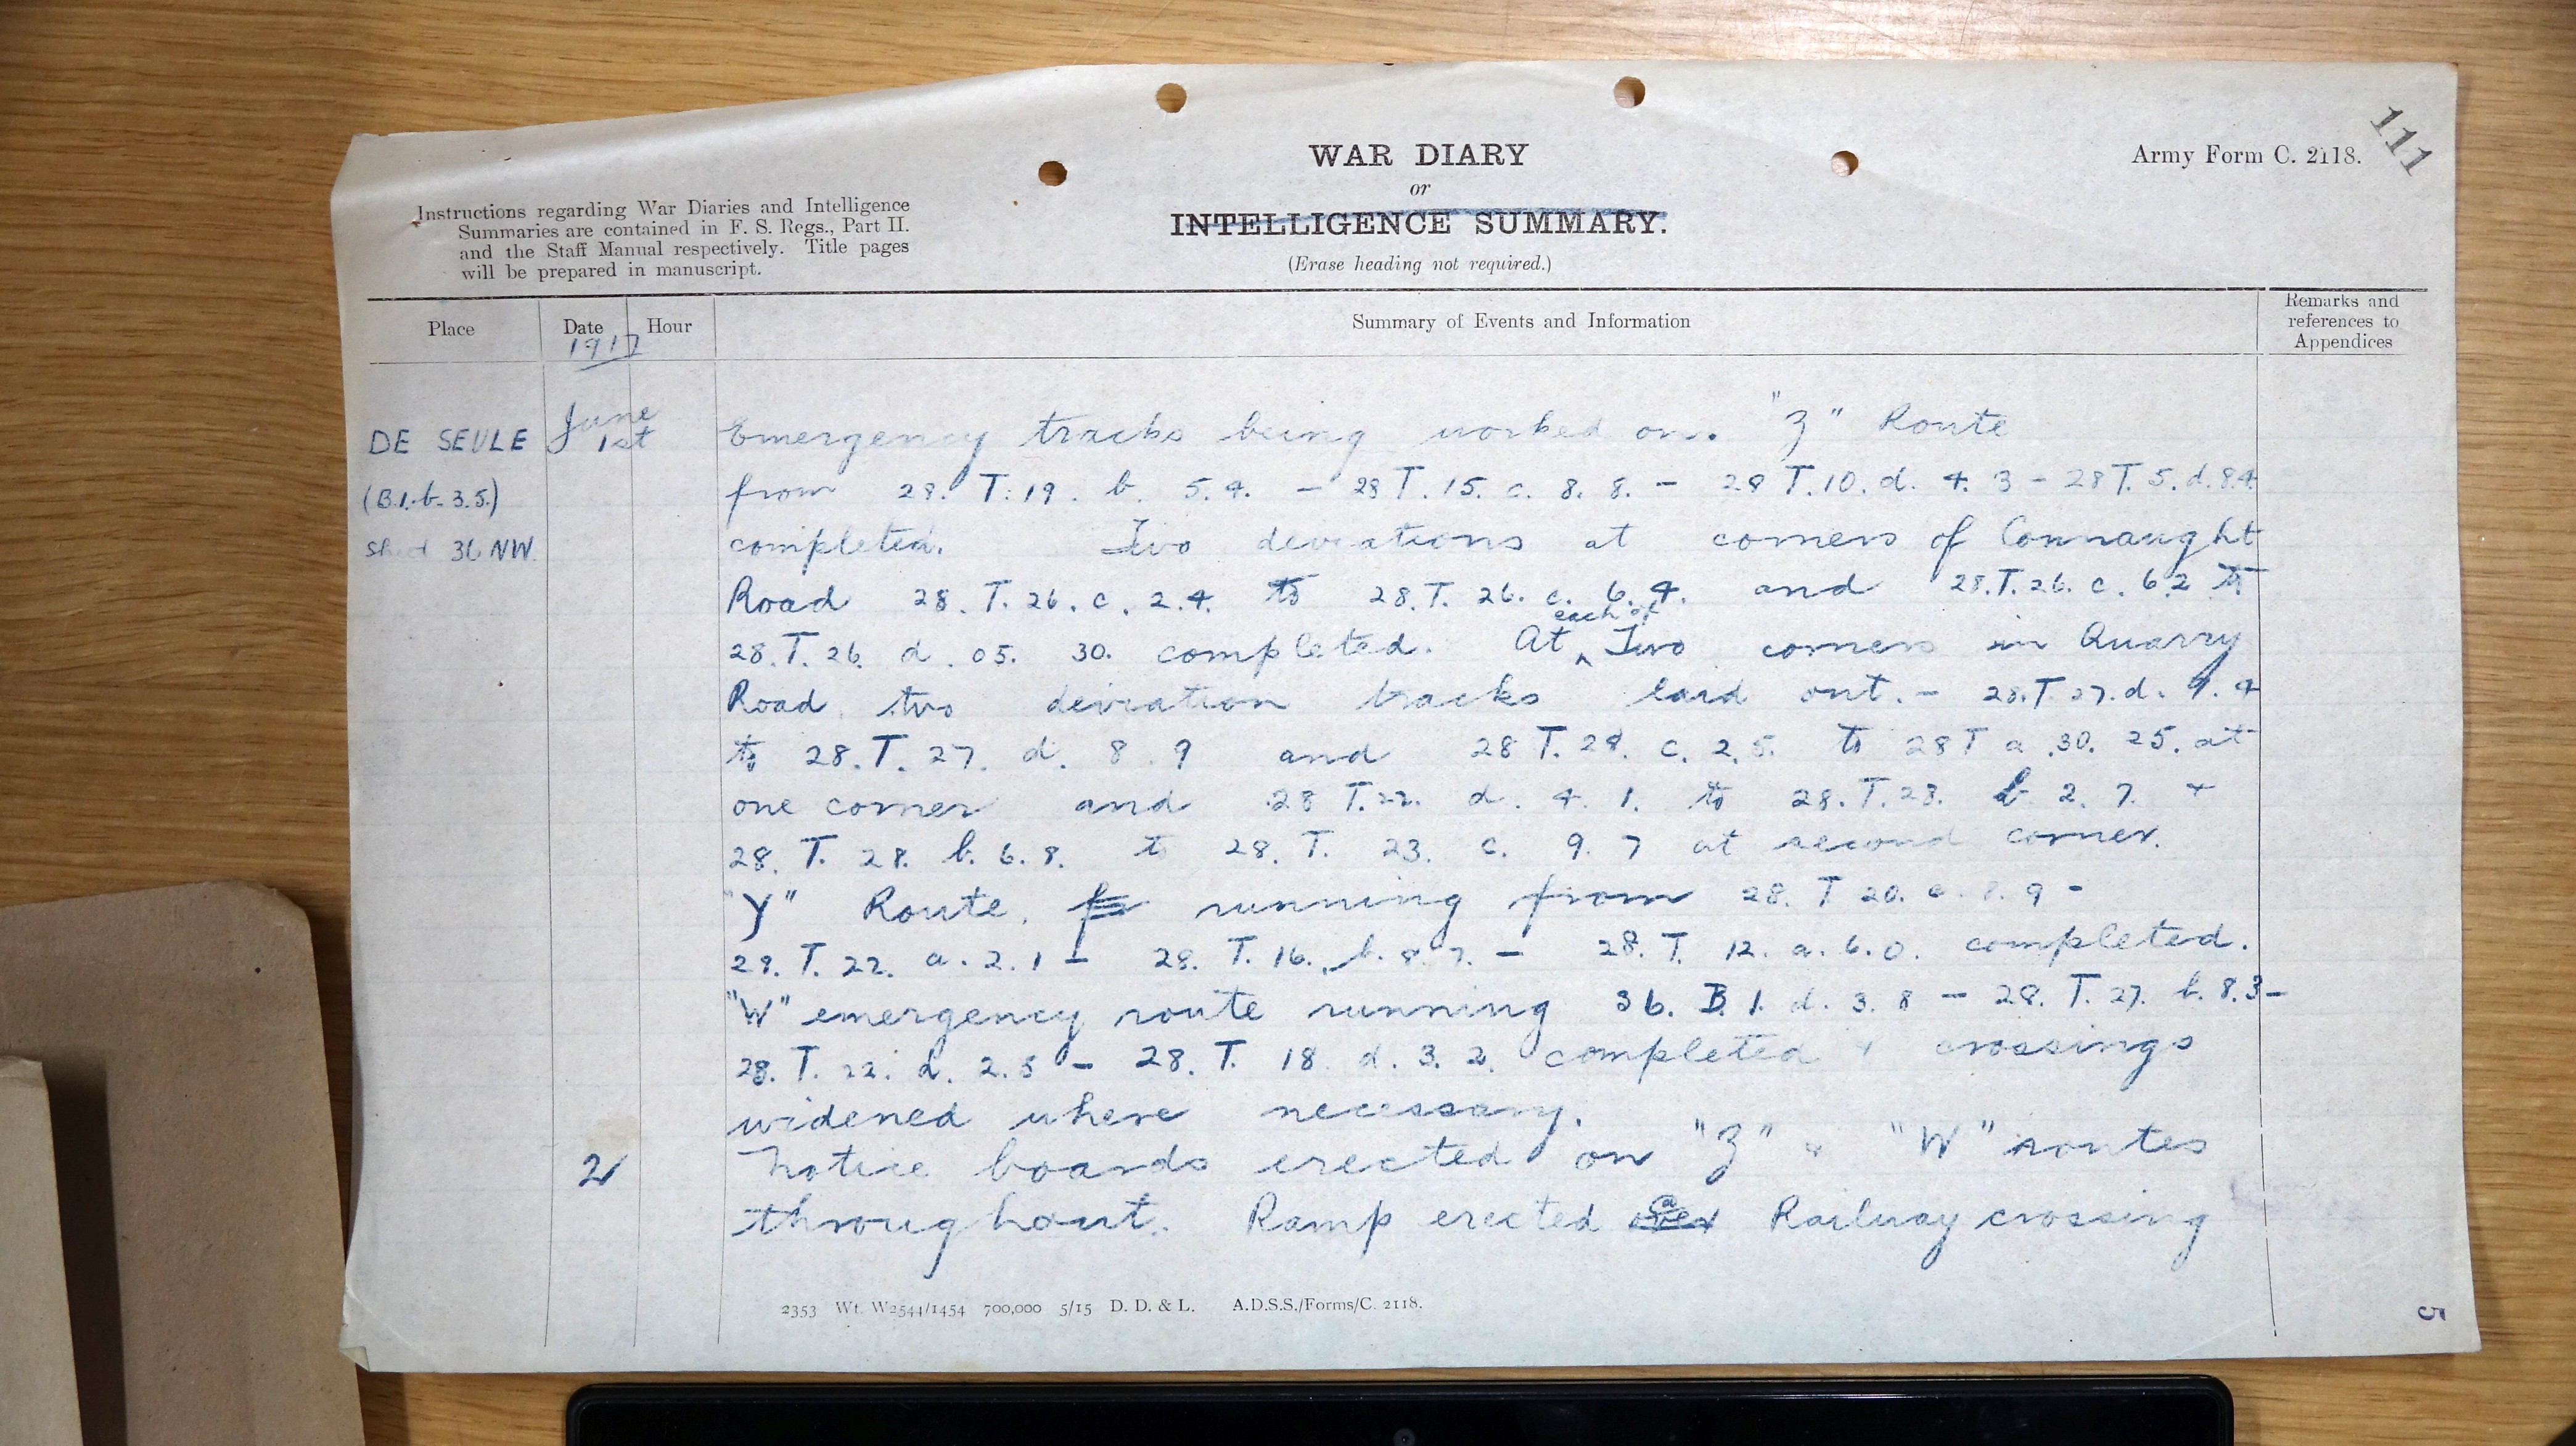 111
Army Form C. 2118.
WAR DIARY
or
INTELLIGENCE SUMMARY.
(Erase heading not required.)
Instructions regarding War Diaries and Intelligence
Summaries are contained in F. S. Regs., Part II.
and the Staff Manual respectively. Title pages
will be prepared in manuscript.
Place
Date
1917
Hour
Summary of Events and Information
Remarks and
references to
Appendices
DE SEULE
(B.1.b.3.5.)
Sheet 36 NW.
June
1st
Emergency tracks being worked on. "Z" Route
from 28. T. 19. b. 5.4. - 28 T. 15. c. 8. 8. - 28 T. 10. d. 4. 3 - 28 T. 5. d. 8.4
completed. Two deviations at corners of Connaught
Road 28. T. 26. c. 2.4. to 28. T. 26. c. 6. 4. and 28. T. 26. c. 6.2 to
28. T. 26. d. 05. 30. completed. At each of Two corners in Quarry
Road two deviation tracks laid out. - 28. T 27. d. 9. 4
to 28. T. 27. d. 8. 9 and 28 T. 28. c. 2.5. to 28 T a 30. 25. at
one corner and 28 T. 22. d. 4. 1. to 28. T. 28. b 2. 7. +
28. T. 28. b. 6. 8. to 28. T. 23. c. 9. 7 at second corner.
"Y" Route, running from 28. T 20. 8. 9 -
28. T. 22. a. 2. 1 - 28. T. 16. b. 8. 7. - 28. T. 12. a. 6. 0. completed.
"W" emergency route running 36. B. 1. d. 3. 8 - 28. T. 27. b. 8. 3 -
28. T. 22. d. 2. 5 - 28. T. 18 d. 3. 2. completed & crossings
widened where necessary.
2
Notice boards erected on "Z" & "W" routes
throughout. Ramp erected @ Railway crossing
2353 Wt. W2544/1454 700,000 5/15 D. D. & L. A.D.S.S./Forms/C. 2118.
5